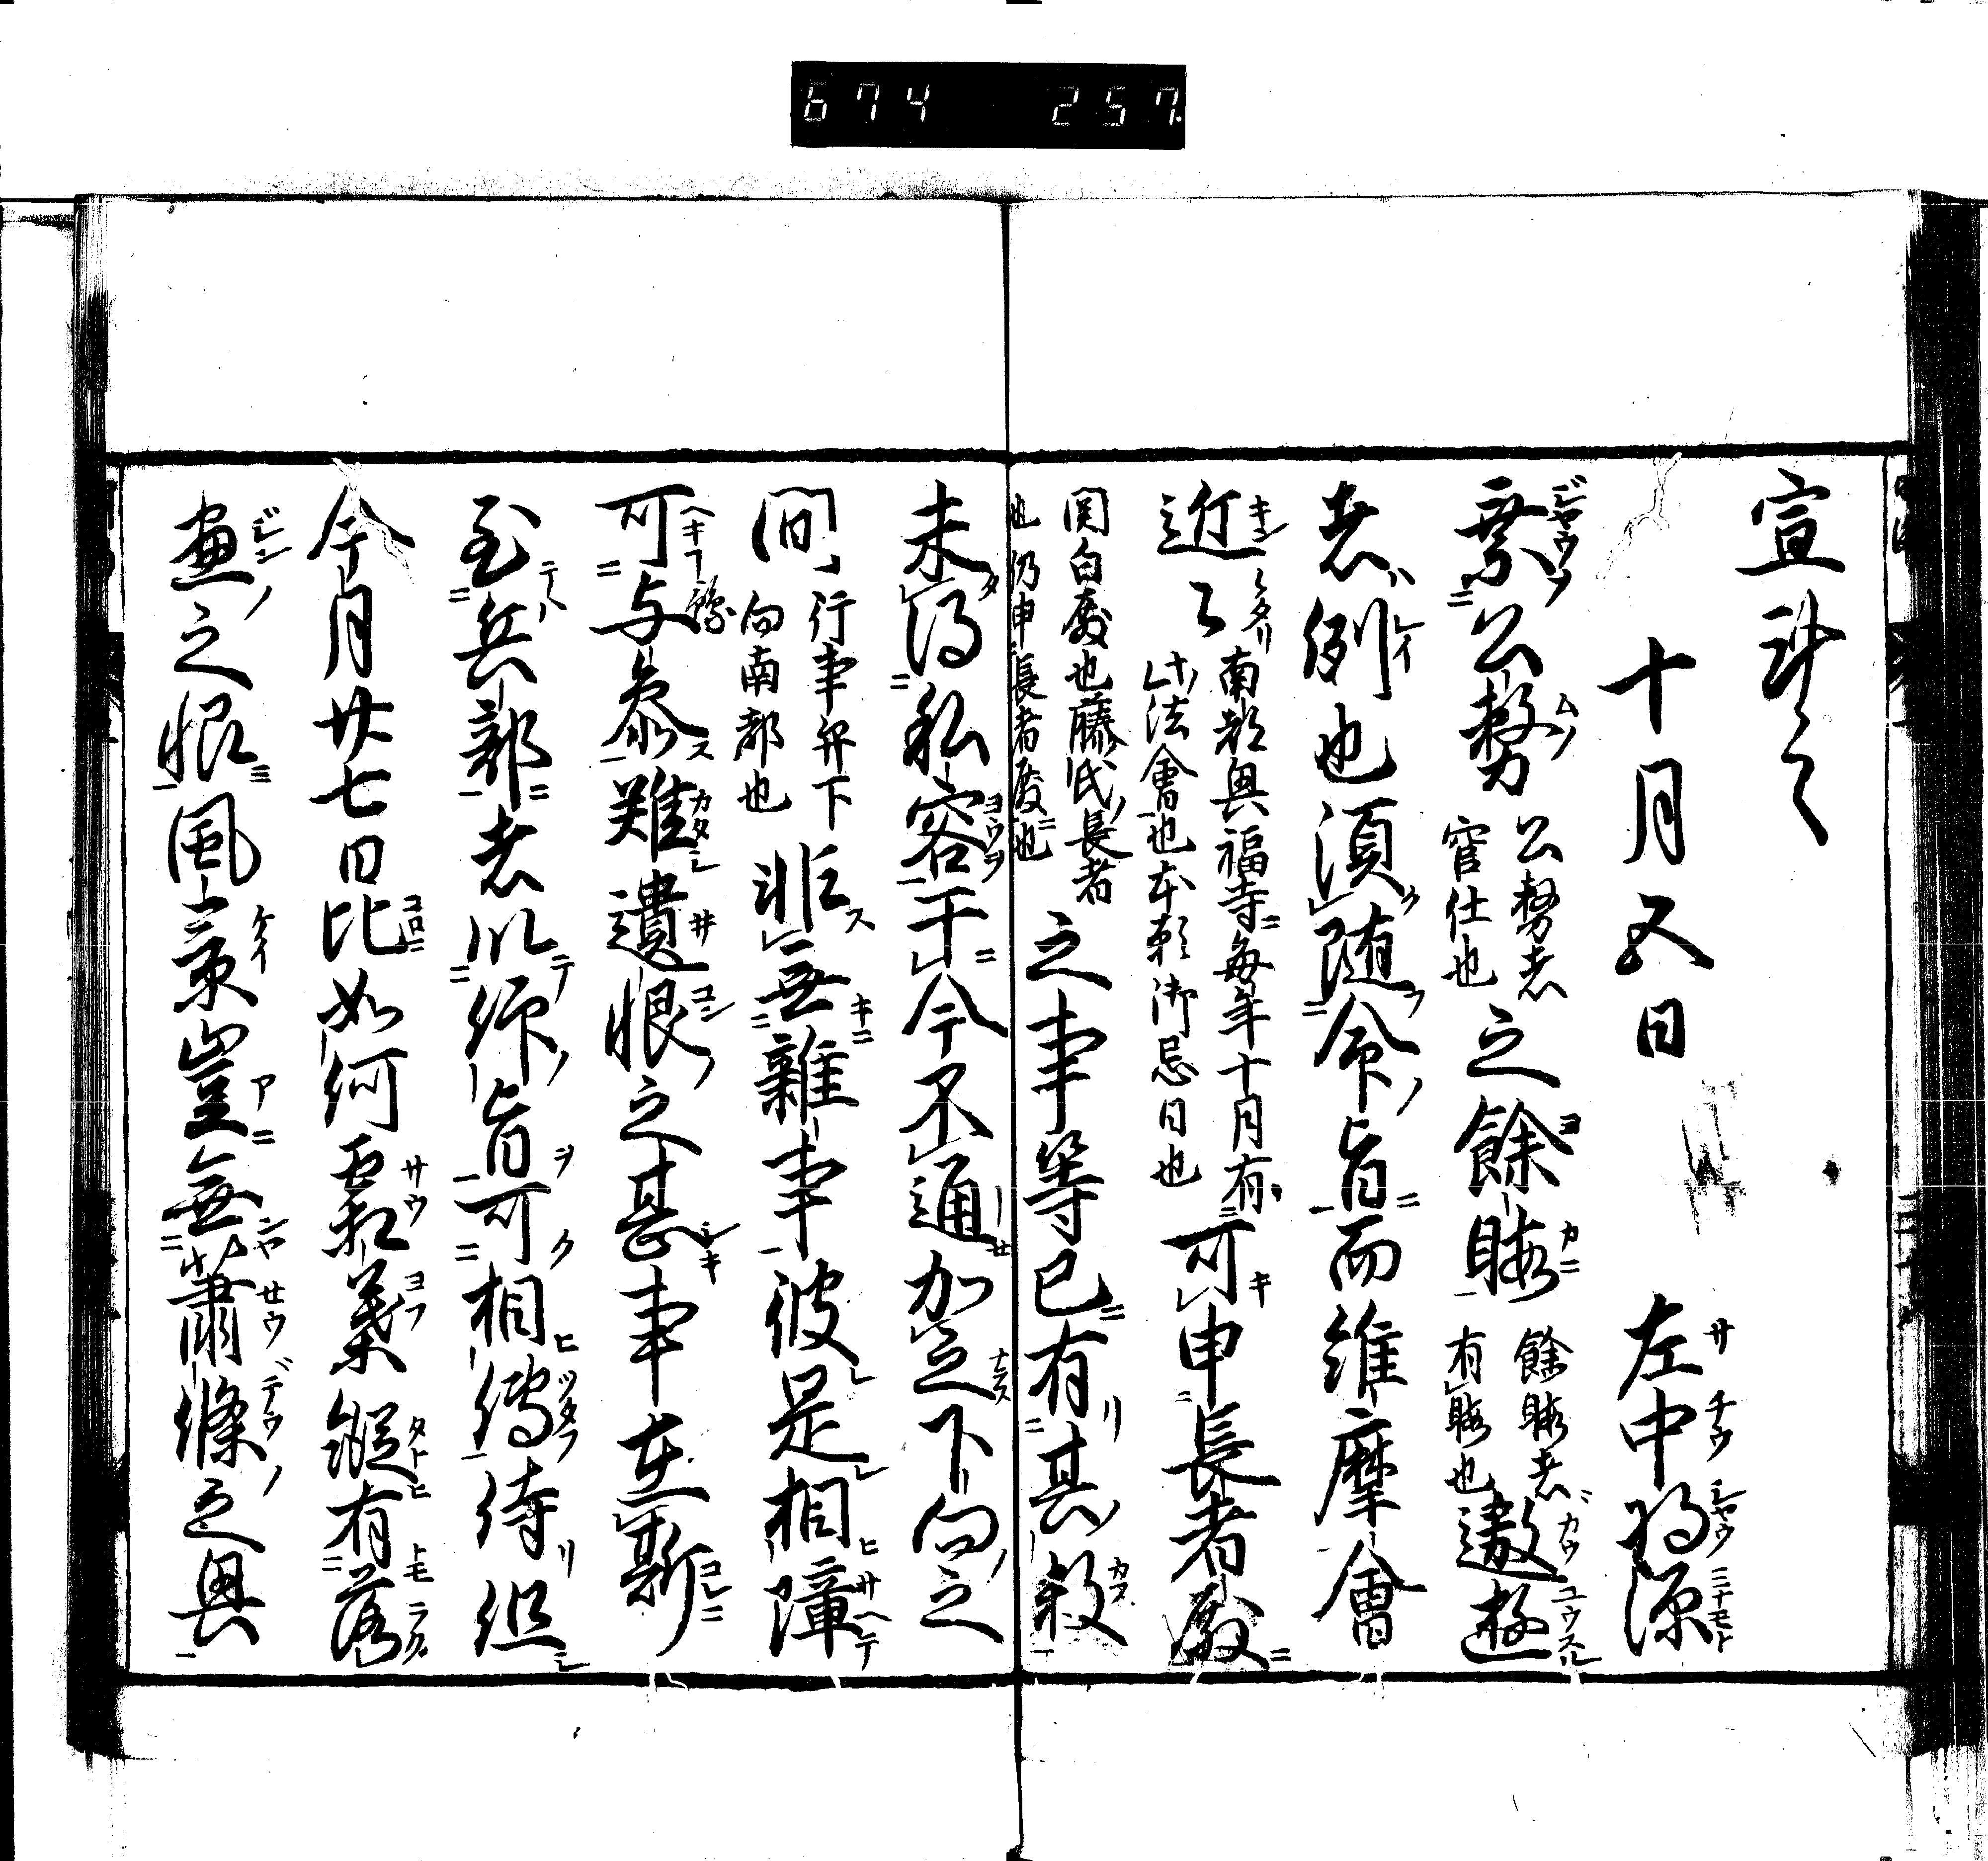 674 257.
宣謹言
十月五日 左中将源
乗公務公務者官仕也之餘暇餘暇者有暇也遨遊
者例也須随命旨而維摩會
近々南都興福寺毎年十月有此法會也本願御忌日也可申長者殿
関白殿也藤氏長者也仍申長者殿也之事等已有其数
未得私容于今不通加之下向之
間行事弁下向南都也非無雑事彼是相障
可与参難遺恨之甚事在斯
至兵部者以師旨可相傳侍但
今月廿七日比如何霜葉縱有落
盡之恨風景豈無蕭條之興